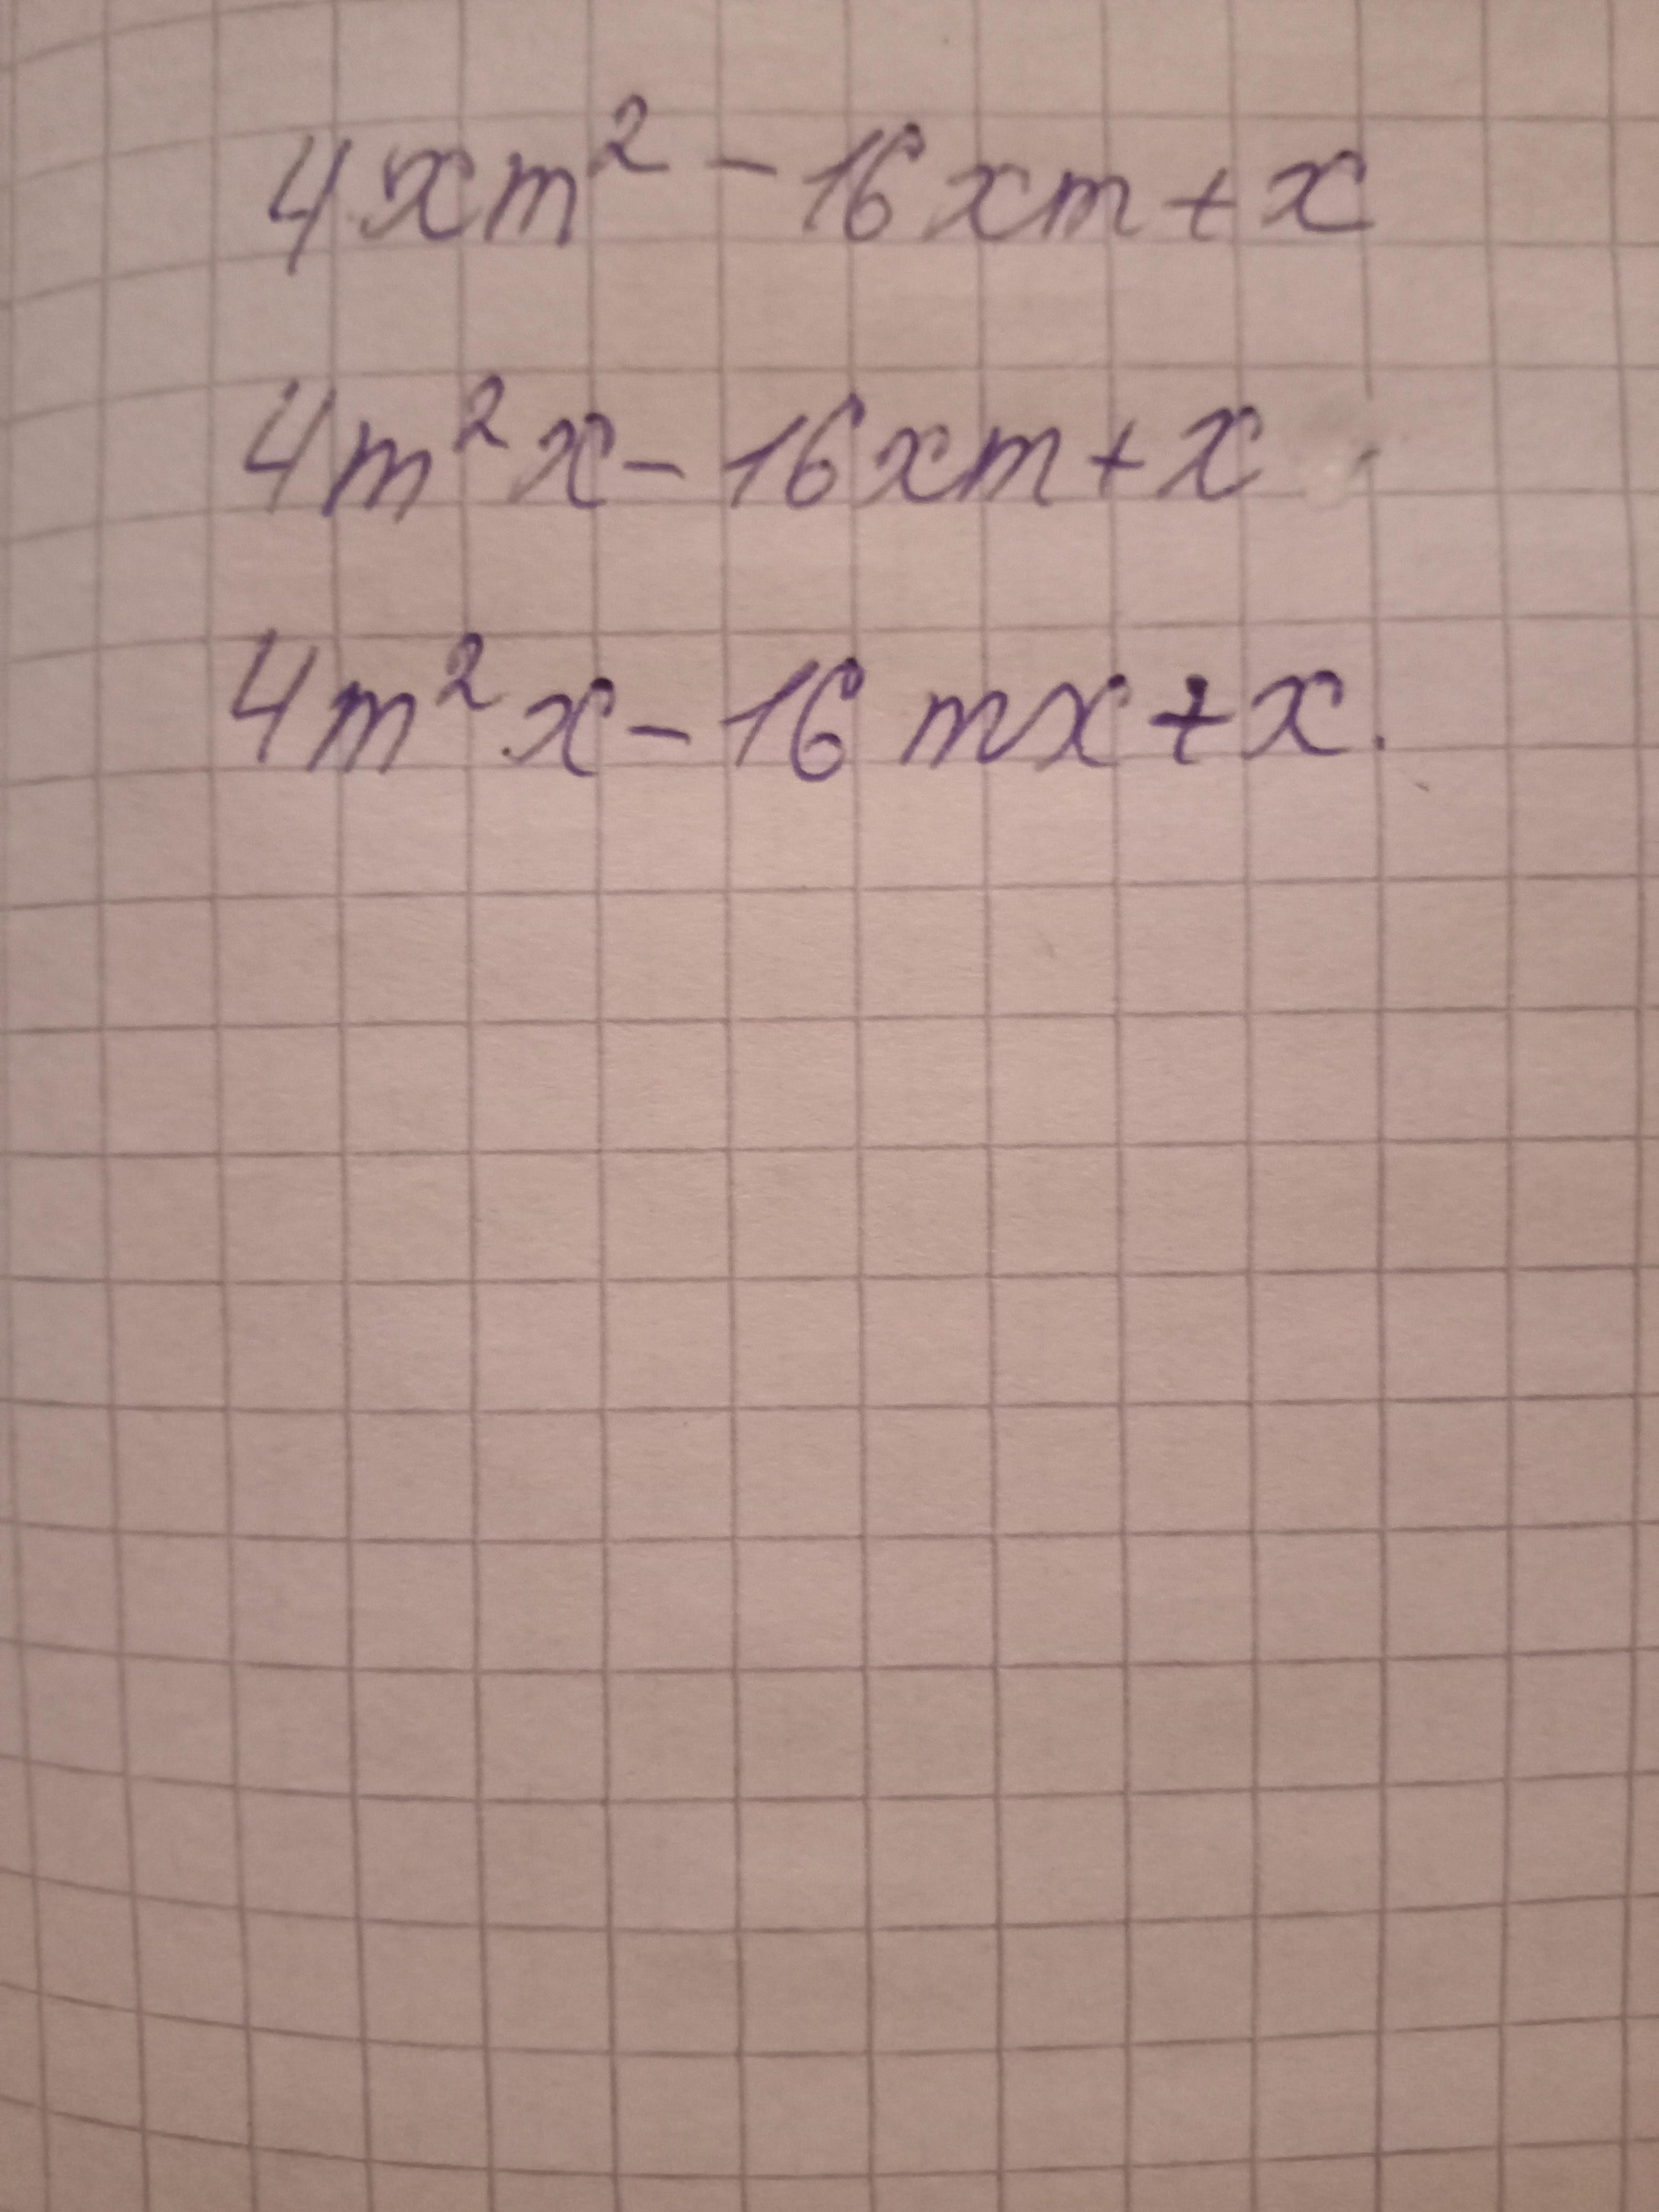 4xm² - 16xm + x
4m²x - 16xm + x
4m²x - 16 mx + x.